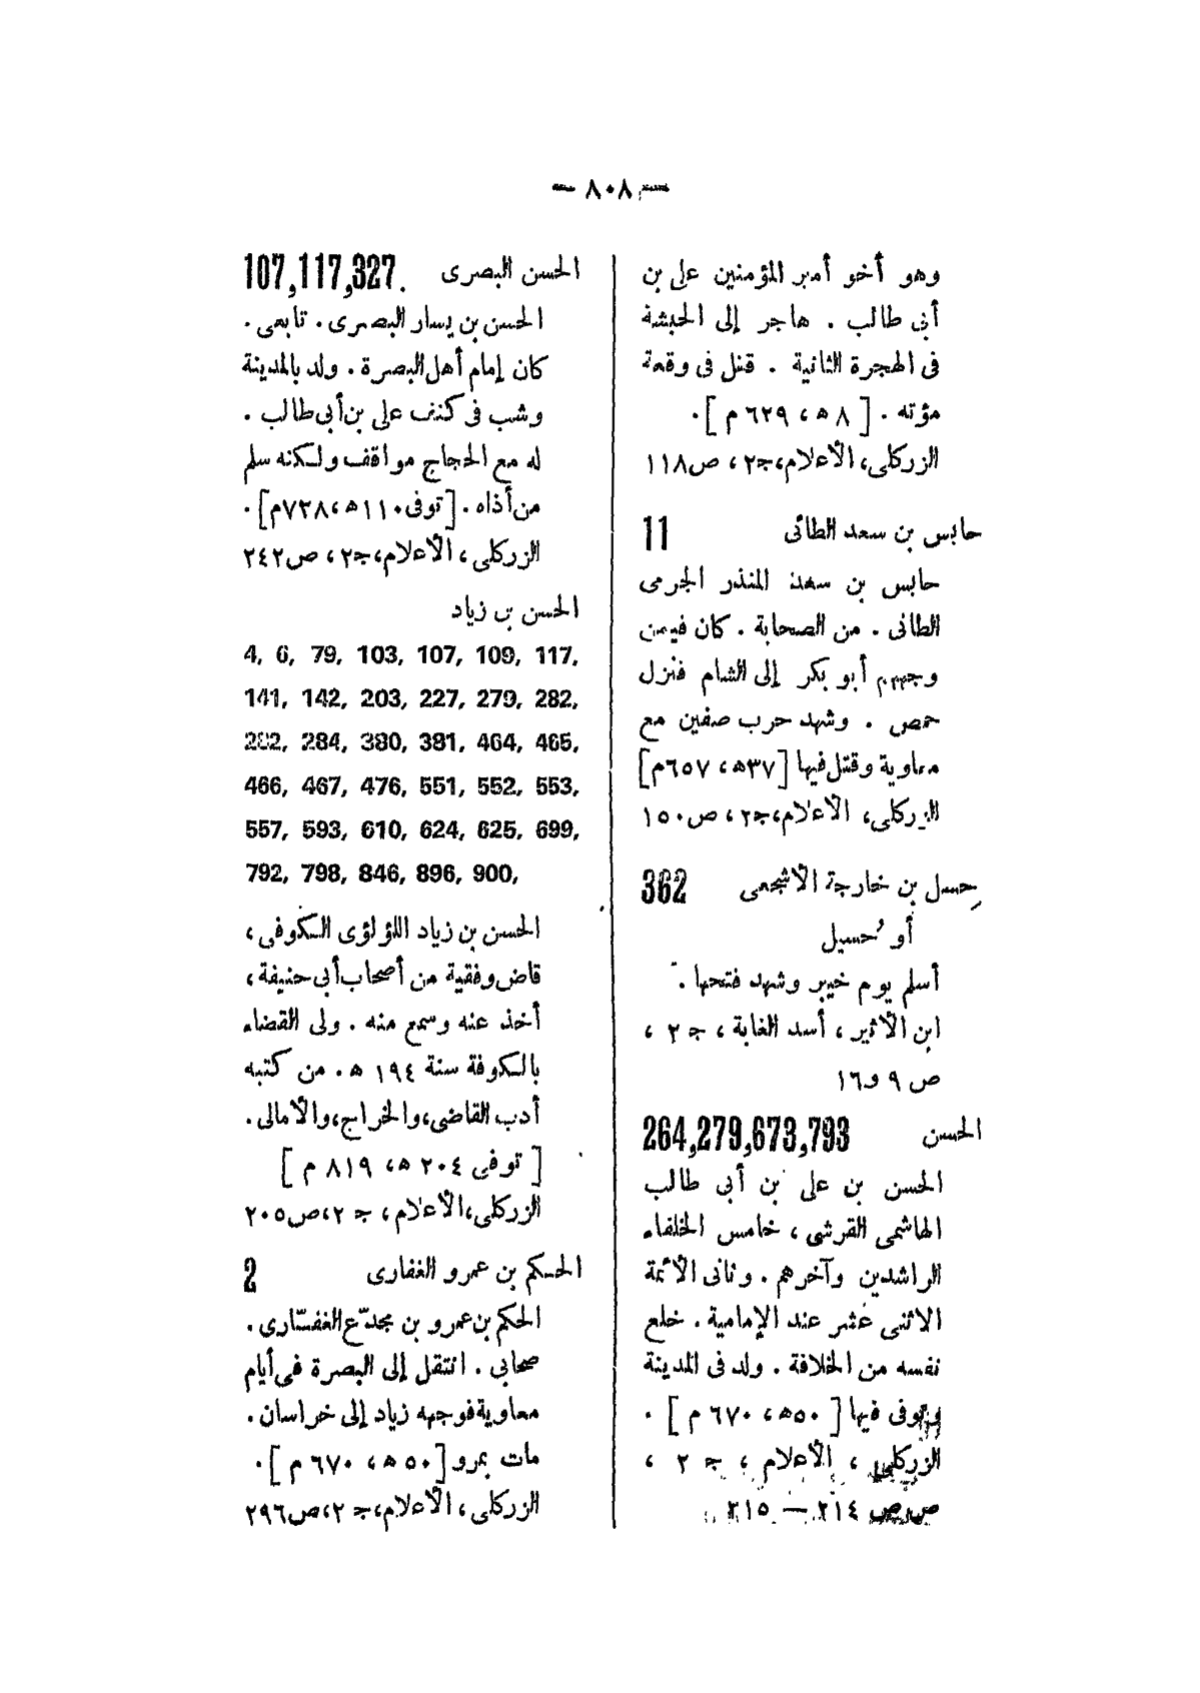 — ٨٠٨ —
وهو أخو أمير المؤمنين على بن
أبى طالب . هاجر إلى الحبشة
فى الهجرة الثانية . قتل فى وقعة
مؤته . [ ٨ هـ ، ٦٢٩ م ] .
الزركلى، الأعلام،جـ٢ ، ص١١٨
حابس بن سعد الطائى 11
حابس بن سعد المنذر الجرمى
الطائى . من الصحابة . كان فيمن
وجههم أبو بكر إلى الشام فنزل
حمص . وشهد حرب صفين مع
معاوية وقتل فيها [٣٧هـ ، ٦٥٧م]
الزركلى، الأعلام،جـ٢ ، ص١٥٠
حِسل بن خارجة الأشجعى 362
أو حُسيل
أسلم يوم خيبر وشهد فتحها .
ابن الأثير ، أسد الغابة ، جـ ٢ ،
ص ٩ و١٦
الحسن 264,279,673,793
الحسن بن على بن أبى طالب
الهاشمى القرشى ، خامس الخلفاء
الراشدين وآخرهم . وثانى الأئمة
الاثنى عشر عند الإمامية . خلع
نفسه من الخلافة . ولد فى المدينة
وتوفى فيها [ ٥٠هـ ، ٦٧٠ م ] .
الزركلى ، الأعلام ، جـ ٢ ،
ص ص ٢١٤ — ٢١٥
الحسن البصرى 107,117,327.
الحسن بن يسار البصرى . تابعى .
كان إمام أهل البصرة . ولد بالمدينة
وشب فى كنف على بن أبى طالب .
له مع الحجاج مواقف ولكنه سلم
من أذاه . [توفى ١١٠هـ ،٧٢٨م] .
الزركلى ، الأعلام،جـ٢ ، ص٢٤٢
الحسن بن زياد
4, 6, 79, 103, 107, 109, 117,
141, 142, 203, 227, 279, 282,
282, 284, 380, 381, 464, 465,
466, 467, 476, 551, 552, 553,
557, 593, 610, 624, 625, 699,
792, 798, 846, 896, 900,
الحسن بن زياد اللؤلؤى الكوفى ،
قاض وفقية من أصحاب أبى حنيفة ،
أخذ عنه وسمع منه . ولى القضاء
بالكوفة سنة ١٩٤ هـ . من كتبه
أدب القاضى،والخراج،والأمالى .
[ توفى ٢٠٤ هـ ، ٨١٩ م ]
الزركلى،الأعلام ، جـ ٢،ص٢٠٥
الحكم بن عمرو الغفارى 2
الحكم بن عمرو بن مجدّع الغفّارى .
صحابى . انتقل إلى البصرة فى أيام
معاوية فوجهه زياد إلى خراسان .
مات بمرو [ ٥٠ هـ ، ٦٧٠ م ] .
الزركلى ، الأعلام،جـ ٢،ص٢٩٦